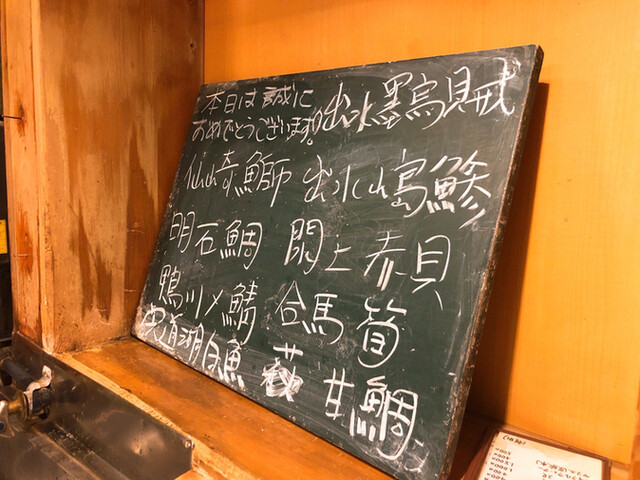 本日は誠に
おめでとうございます。
出水墨烏賊
仙崎鰤
出水島鯵
明石鯛
閖上赤貝
鴨川〆鯖
合馬筍
宍道湖白魚
甘鯛